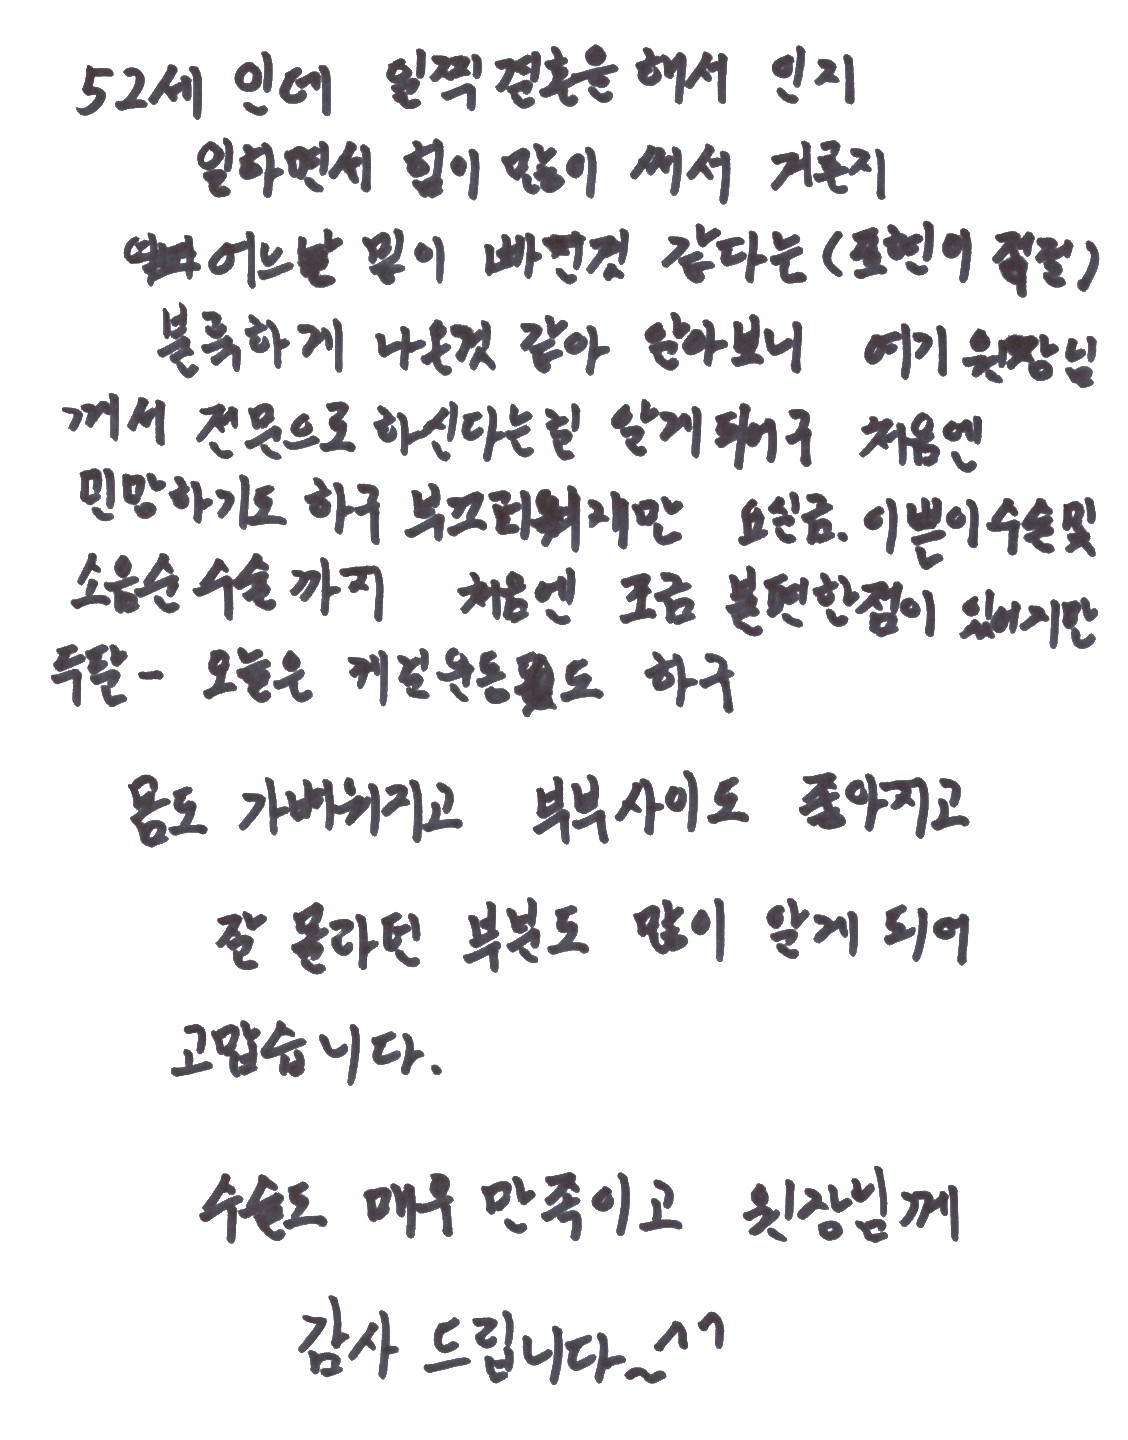 52세 인데 일찍 결혼을 해서 인지
일하면서 힘이 많이 써서 거른지
어느날 밑이 빠진것 같다는 (표현이 적절)
볼록하게 나온것 같아 알아보니 여기 원장님
께서 전문으로 하신다는걸 알게 되어구 처음엔
민망하기도 하구 부끄러워지만 요실금. 이쁜이수술및
소음순 수술 까지 처음엔 조금 불편한점이 있어지만
두달- 오늘은 케겔운동도 하구
몸도 가벼워지고 부부사이도 좋아지고
잘 몰라던 부분도 많이 알게 되어
고맙습니다.
수술도 매우 만족이고 원장님께
감사 드립니다~^^